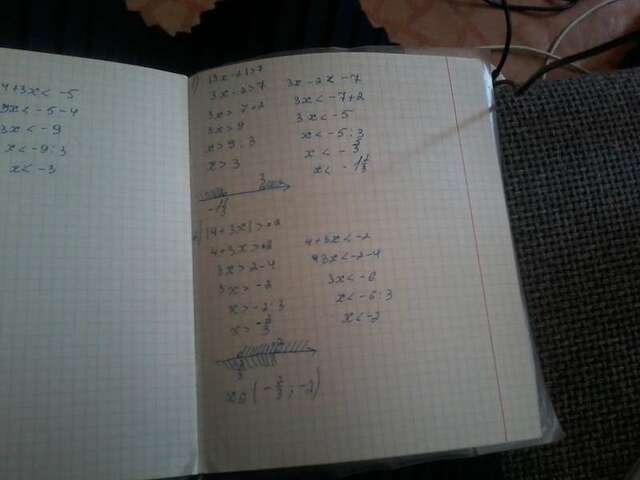 4+3x< -5
3x< -5-4
3x< -9
x< -9:3
x< -3
|3x-2|>7
3x-2>7
3x> 7+2
3x>9
x>9:3
x>3
3x-2< -7
3x< -7+2
3x< -5
x< -5:3
x< -1⅔
3
|4+3x|>2
4+3x>2
3x>2-4
3x>-2
x>-2:3
x>-⅔
4+3x<-2
3x<-2-4
3x<-6
x<-6:3
x<-2
(-⅔; -2)